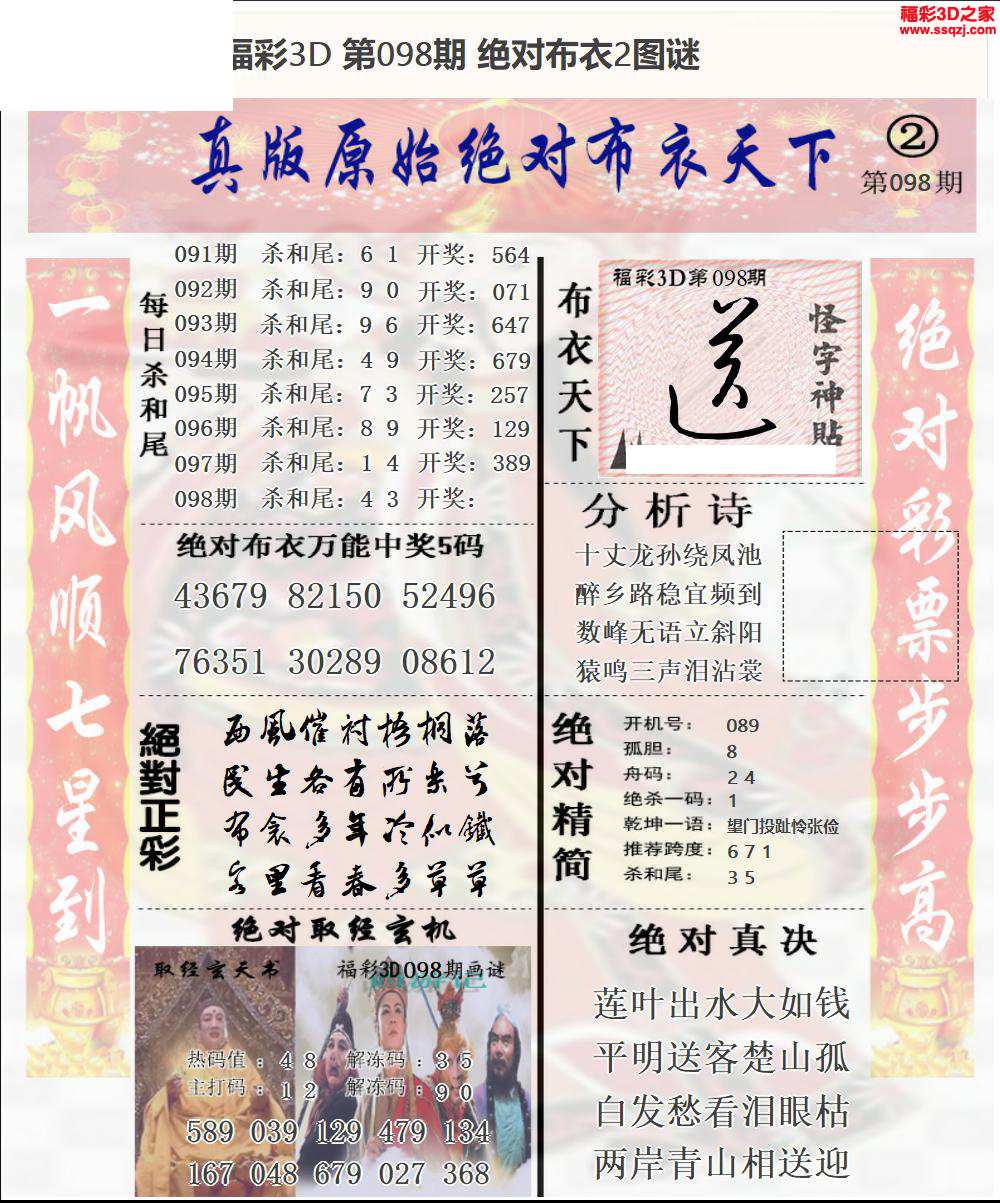 福彩3D之家
www.ssqzj.com
福彩3D 第098期 绝对布衣2图谜
真版原始绝对布衣天下
②
第098期
一帆风顺七星到
每日杀和尾
091期 杀和尾: 6 1 开奖: 564
092期 杀和尾: 9 0 开奖: 071
093期 杀和尾: 9 6 开奖: 647
094期 杀和尾: 4 9 开奖: 679
095期 杀和尾: 7 3 开奖: 257
096期 杀和尾: 8 9 开奖: 129
097期 杀和尾: 1 4 开奖: 389
098期 杀和尾: 4 3 开奖:
绝对布衣万能中奖5码
43679 82150 52496
76351 30289 08612
絕對正彩
西風催衬梧桐落
民生各有所乐兮
布衾多年冷似鐵
客里看春多草草
绝对取经玄机
取经玄天书
福彩3D098期画谜
热码值:4 8 解冻码:3 5
主打码:1 2 解冻码:9 0
589 039 129 479 134
167 048 679 027 368
布衣天下
福彩3D第098期
怪字神貼
分析诗
十丈龙孙绕凤池
醉乡路稳宜频到
数峰无语立斜阳
猿鸣三声泪沾裳
绝对精简
开机号: 089
孤胆: 8
舟码: 2 4
绝杀一码: 1
乾坤一语: 望门投趾怜张俭
推荐跨度: 6 7 1
杀和尾: 3 5
绝对真决
莲叶出水大如钱
平明送客楚山孤
白发愁看泪眼枯
两岸青山相送迎
绝对彩票步步高